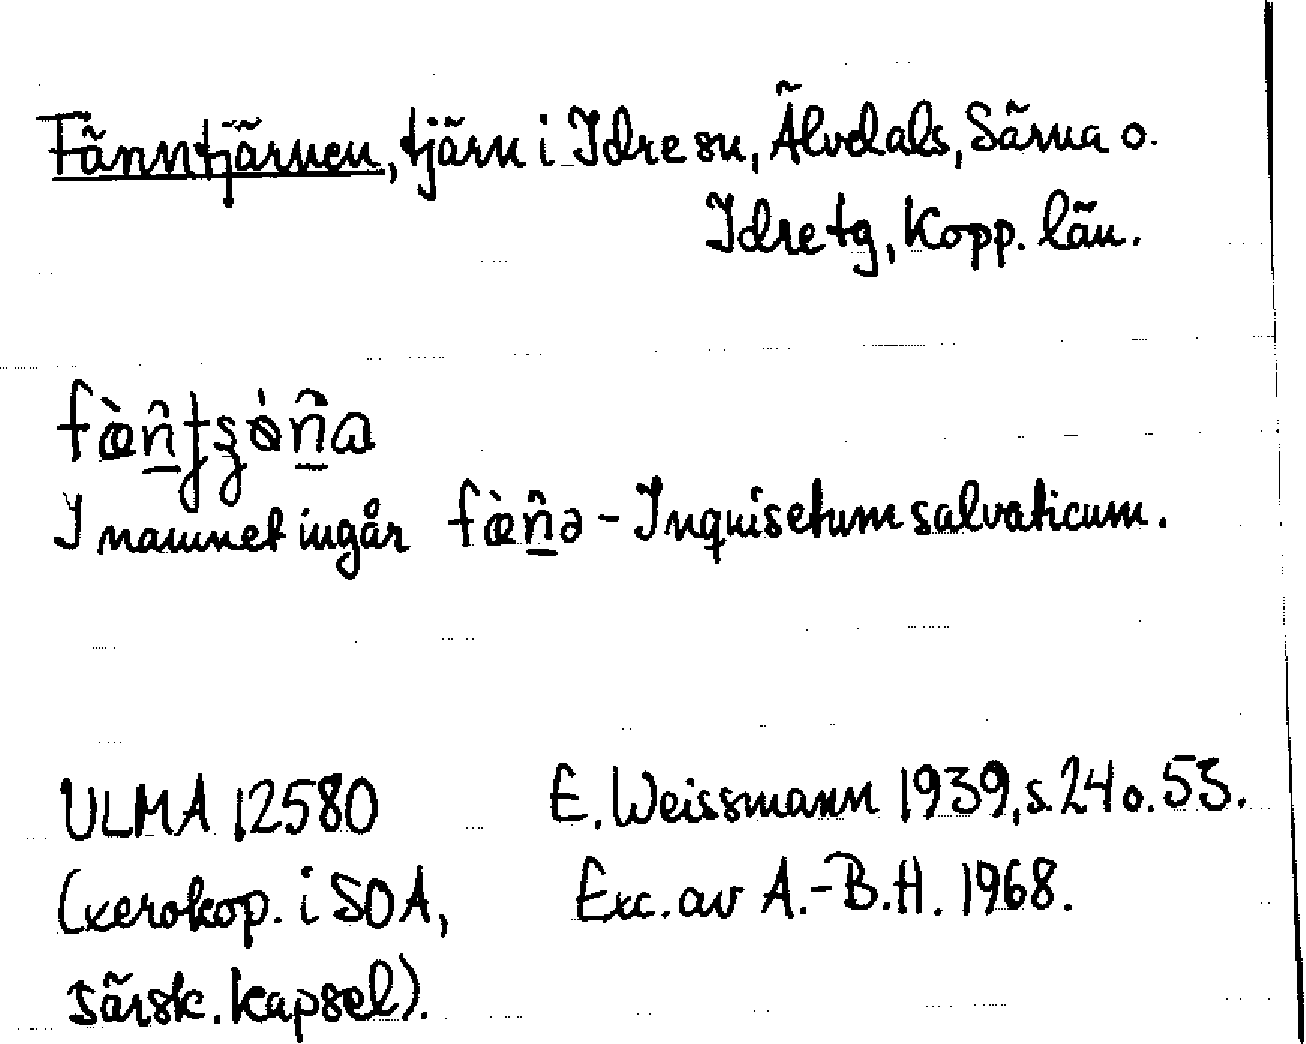 Fänntjärnen, tjärn i Idre sn, Älvdals, Särna o.
Idre tg, Kopp. län.
I namnet ingår fœ̀ṉ̂ə - Inquisetum salvaticum.
ULMA 12580 E. Weissmann 1939, s. 24 o. 53.
(xerokop. i SOA, Exc. av A.-B.H. 1968.
särsk. kapsel).